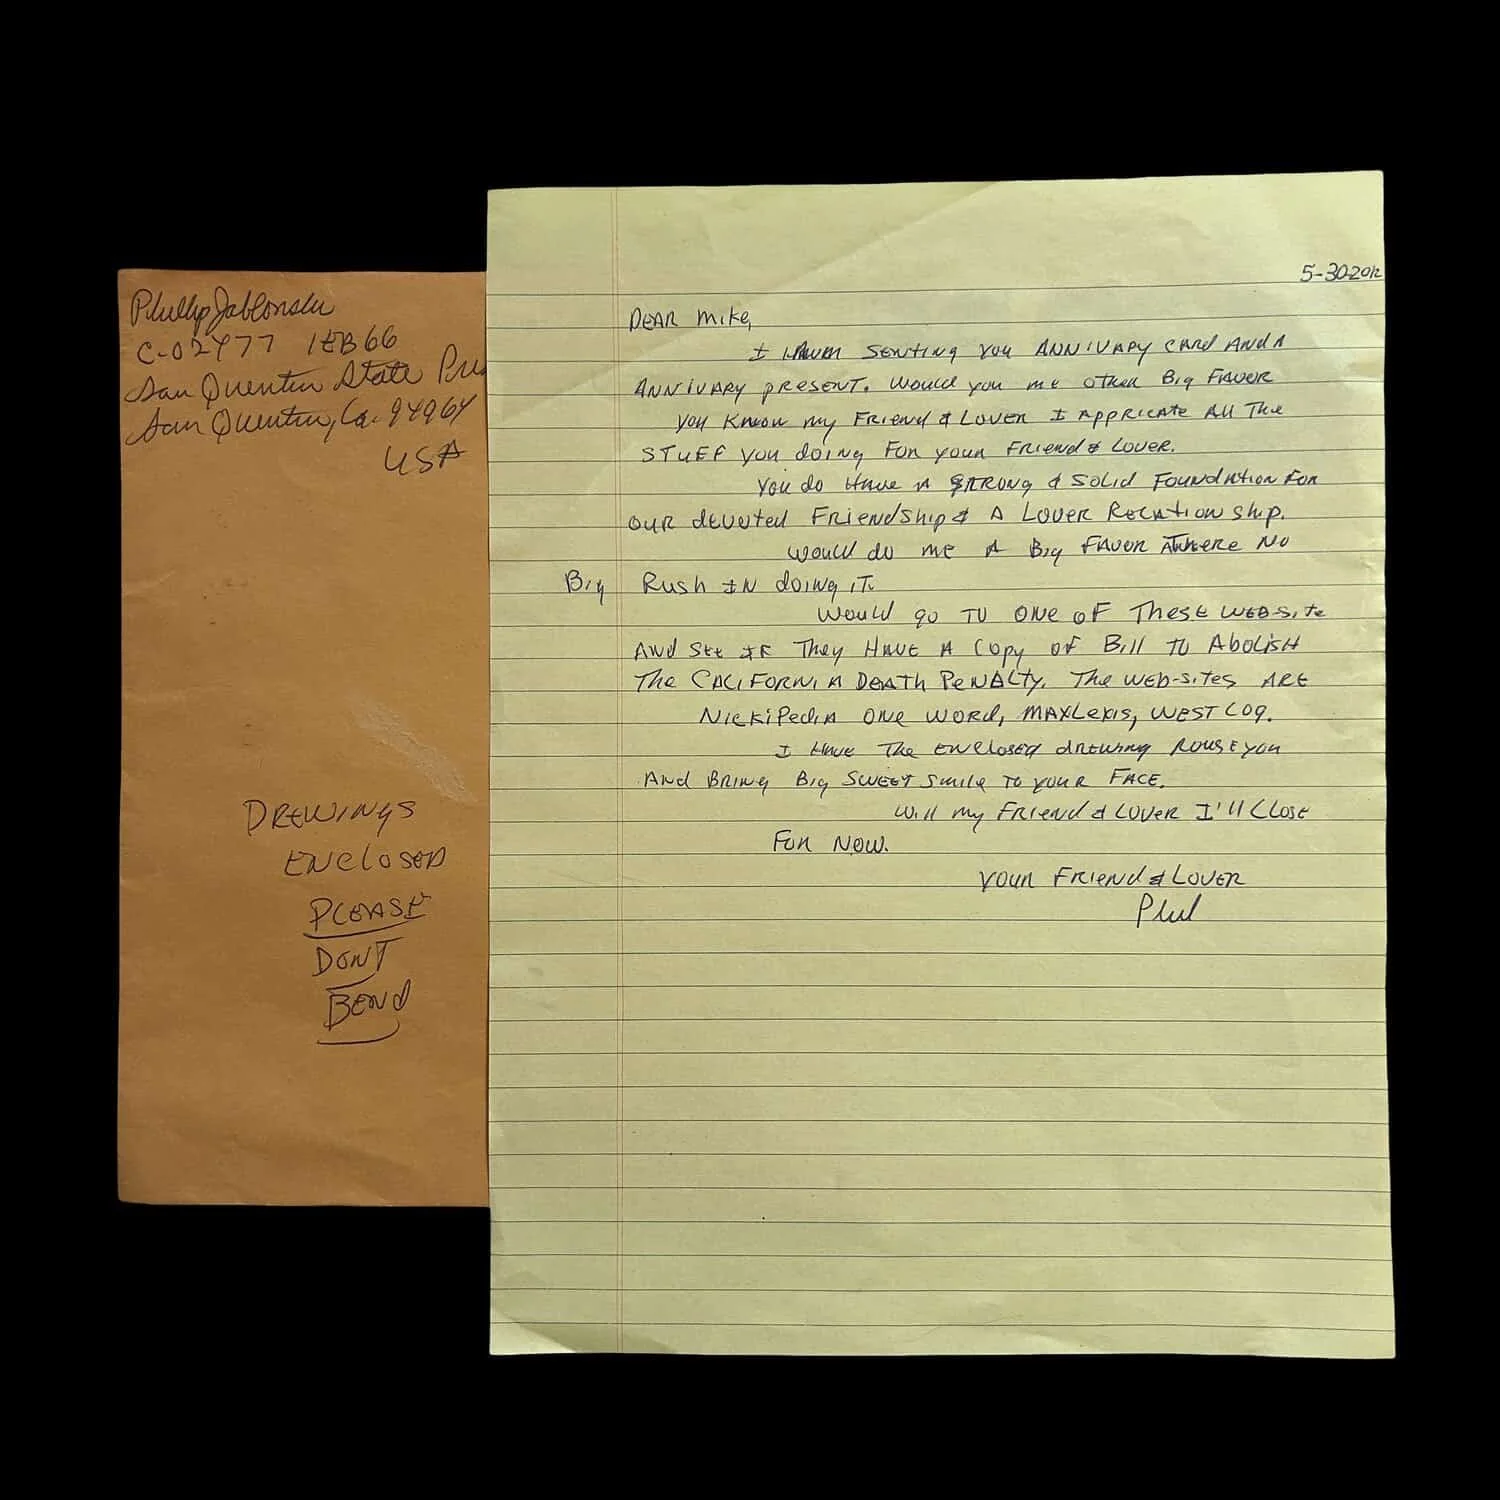 Phillip Jablonski
C-02477 1EB66
San Quentin State Pris
San Quentin, Ca. 94964
USA
DREWINGS
ENCLOSED
PLEASE
DONT
BEND
5-30-2012
DEAR Mike,
I SENTING YOU ANNIVARY CARD AND A
ANNIVARY PRESENT. WOULD YOU ME OTHER BIG FAVOR
YOU KNOW MY FRIEND & LOVER I APPRICATE ALL THE
STUFF YOU DOING FOR YOUR FRIEND & LOVER.
YOU DO HAVE A STRONG & SOLID FOUNDATION FOR
OUR DEVOTED FRIENDSHIP & A LOVER RELATIONSHIP.
WOULD DO ME A BIG FAVOR THERE NO
BIG RUSH IN DOING IT.
WOULD GO TO ONE OF THESE WEB-SITE
AND SEE IF THEY HAVE A COPY OF BILL TO ABOLISH
THE CALIFORNIA DEATH PENALTY. THE WEB-SITES ARE
NICKIPEDIA ONE WORD, MAXLEXIS, WEST LOG.
I HAVE THE ENCLOSED DREWING ROUSE YOU
AND BRING BIG SWEET SMILE TO YOUR FACE.
WILL MY FRIEND & LOVER I'LL CLOSE
FOR NOW.
YOUR FRIEND & LOVER
Phil